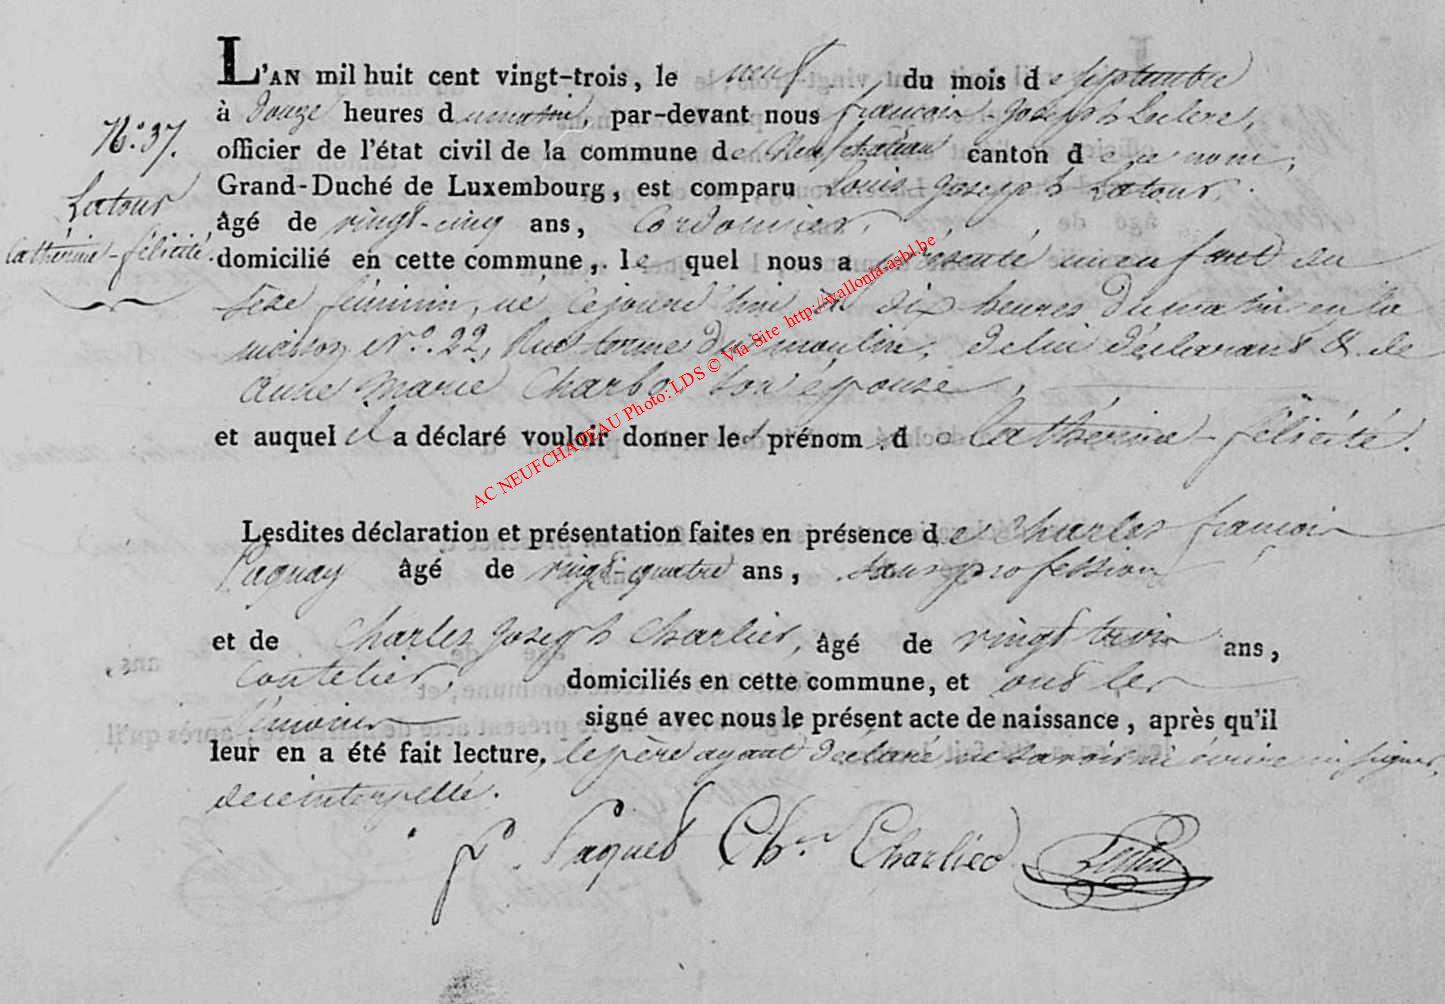 L'AN mil huit cent vingt-trois, le neuf du mois de Septembre
à douze heures du matin, par-devant nous françois-Joseph Leclerc,
N.° 37.
officier de l'état civil de la commune de Neufchateau canton de ce nom,
Grand-Duché de Luxembourg, est comparu Louis-Joseph Latour,
Latour
âgé de vingt-cinq ans, Cordonnier,
Cathérine-félicité.
domicilié en cette commune, lequel nous a présenté un enfant du
sexe féminin, né cejourd'hui à dix heures du matin en la
maison N.° 22, Rue du moulin, de lui déclarant & de
Anne Marie Charlo son épouse,
et auquel il a déclaré vouloir donner les prénom de Cathérine-félicité.
AC NEUFCHATEAU Photo: LDS © Via Site http://wallonia-asbl.be
Lesdites déclaration et présentation faites en présence de Charles françois
Paquay âgé de vingt-quatre ans, sans profession
et de Charles Joseph Charlier, âgé de vingt trois ans,
Coutelier, domiciliés en cette commune, et ont les
témoins signé avec nous le présent acte de naissance, après qu'il
leur en a été fait lecture, le père ayant déclaré ne savoir ni écrire ni signer,
de ce interpellé.
f. Paquet Ch. Charlier